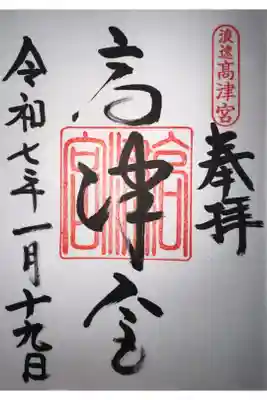 浪速高津宮
奉拝
高津宮
高津宮
令和七年一月十九日